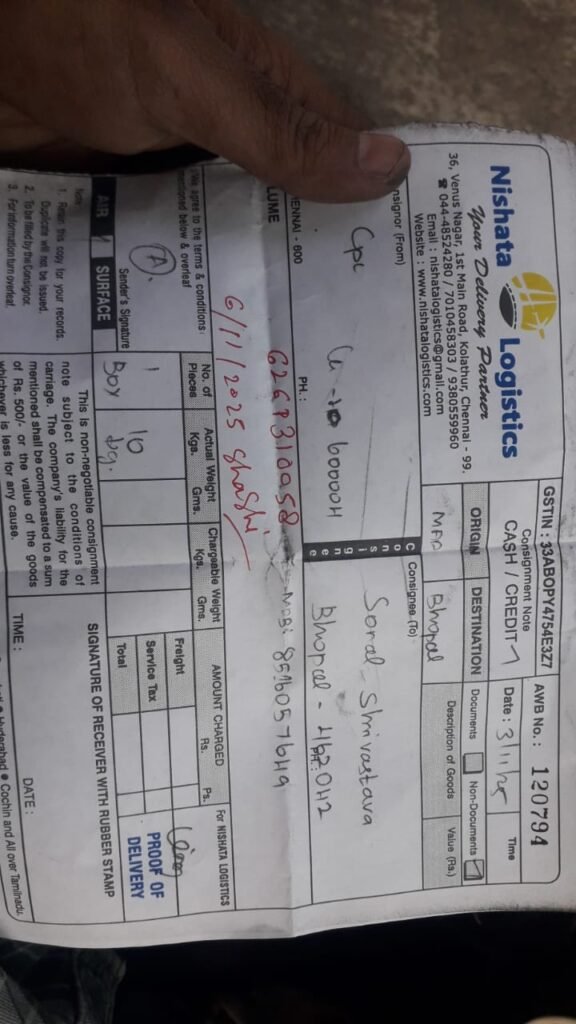 Nishata Logistics
Your Delivery Partner
36, Venus Nagar, 1st Main Road, Kolathur, Chennai - 99.
☎ 044-48524280 / 7010458303 / 9380559960
Email : nishatalogistics@gmail.com
Website : www.nishatalogistics.com
GSTIN : 33ABOPY4754E3Z7
Consignment Note
CASH / CREDIT
AWB No. : 120794
Date : 3/11/25
Time
ORIGIN
DESTINATION
Documents
Non-Documents
Bhopal
Description of Goods
Value (Rs.)
nsignor (From)
Cpc
600004
ENNAI - 600
PH. :
LUME
6/11/2025 Shashi
Consignee
Consignee (To)
Sonal Shrivastava
Bhopal - 462042
PH. :
We agree to the terms & conditions
mentioned below & overleaf
Sender's Signature
AIR / SURFACE
No. of Pieces
Actual Weight
Kgs. Gms.
Chargeable Weight
Kgs. Gms.
1
Box
10
kg.
AMOUNT CHARGED
Rs. Ps.
Freight
Service Tax
Total
For NISHATA LOGISTICS
PROOF OF
DELIVERY
Note :
1. Retain this copy for your records.
Duplicate will not be issued.
2. To be filled by the Consignor.
3. For information turn overleaf.
This is non-negotiable consignment
note subject to the conditions of
carriage. The company's liability for the
mentioned shall be compensated to a sum
of Rs. 500/- or the value of the goods
whichever is less for any cause.
SIGNATURE OF RECEIVER WITH RUBBER STAMP
TIME :
DATE :
Hyderabad ● Cochin and All over Tamilnadu.